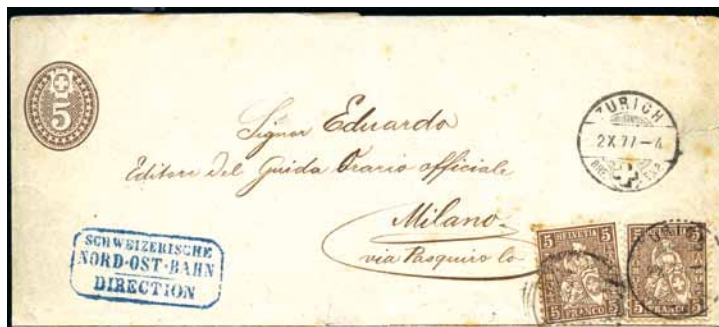 5
ZURICH
2 X 77-4
BRF. EXP.
Signor Eduardo
Editore del Guida Orario officiale
Milano
via Pasquiro 10
SCHWEIZERISCHE
NORD-OST-BAHN
DIRECTION
5 HELVETIA 5
5 FRANCO 5
5 HELVETIA 5
5 FRANCO 5